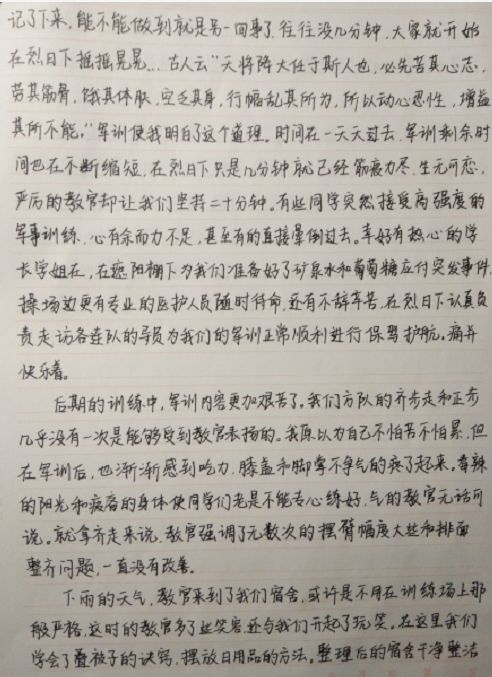 记了下来，能不能做到就是另一回事了，往往没几分钟，大家就开始
在烈日下摇摇晃晃…古人云"天将降大任于斯人也，必先苦其心志，
劳其筋骨，饿其体肤，空乏其身，行拂乱其所为，所以动心忍性，增益
其所不能。"军训使我明白了这个道理。时间在一天天过去，军训剩余时
间也在不断缩短，在烈日下只是几分钟就已经筋疲力尽，生无可恋，
严厉的教官却让我们坚持二十分钟。有些同学突然接受高强度的
军事训练，心有余而力不足，甚至有的直接晕倒过去。幸好有热心的学
长学姐在，在遮阳棚下为我们准备好了矿泉水和葡萄糖应付突发事件，
操场边更有专业的医护人员随时待命，还有不辞辛苦，在烈日下认真负
责走访各连队的导员为我们的军训正常顺利进行保驾护航。痛并
快乐着。
后期的训练中，军训内容更加艰苦了。我们方队的齐步走和正步
几乎没有一次是能够受到教官表扬的。我原以为自己不怕苦不怕累，但
在军训后，也渐渐感到吃力，膝盖和脚掌不争气的疼了起来。毒辣
的阳光和疲惫的身体使同学们老是不能专心练好，气的教官无话可
说。就拿齐走来说，教官强调了无数次的摆臂幅度大些和排面
整齐问题，一直没有改善。
下雨的天气，教官来到了我们宿舍，或许是不用在训练场上那
般严格，这时的教官多了些笑容，还与我们开起了玩笑。在这里我们
学会了叠被子的诀窍，摆放日用品的方法。整理后的宿舍干净整洁